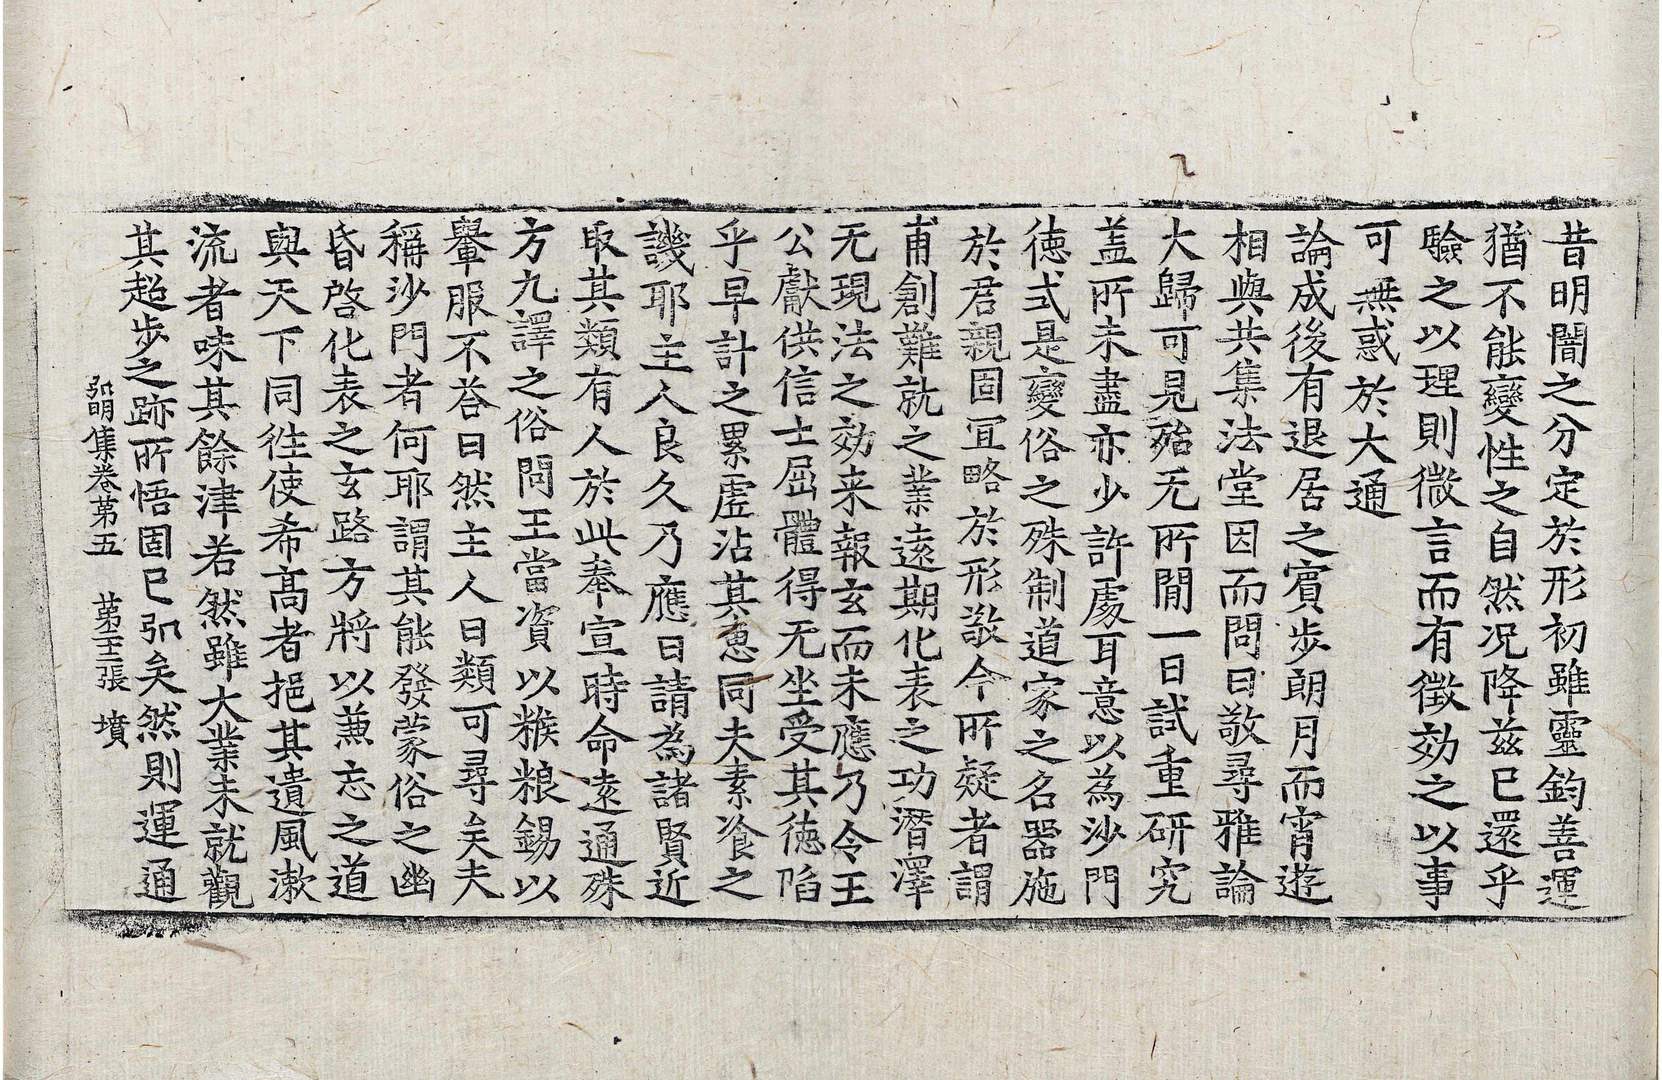 昔明闇之分定於形初雖靈鈞善運
猶不能變性之自然况降兹已還乎
驗之以理則微言而有徵効之以事
可無惑於大通
論成後有退居之賓步朗月而宵遊
相與共集法堂因而問曰敬尋雅論
大歸可見殆无所間一日試重研究
盖所未盡亦少許處耳意以為沙門
徳式是變俗之殊制道家之名器施
於君親固冝略於形敬今所疑者謂
甫創難就之業遠期化表之功潛澤
无現法之効来報玄而未應乃令王
公獻供信士屈體得无坐受其徳陷
乎早計之累虗沾其恵同夫素飡之
譏耶主人良久乃應曰請為諸賢近
取其類有人於此奉宣時命遠通殊
方九譯之俗問王當資以糇粮錫以
轝服不荅曰然主人曰類可尋矣夫
稱沙門者何耶謂其能發蒙俗之幽
昏啓化表之玄路方將以兼忘之道
與天下同徃使希髙者挹其遺風漱
流者味其餘津若然雖大業未就觀
其超步之跡所悟固已弘矣然則運通
弘明集卷第五 第三張 墳